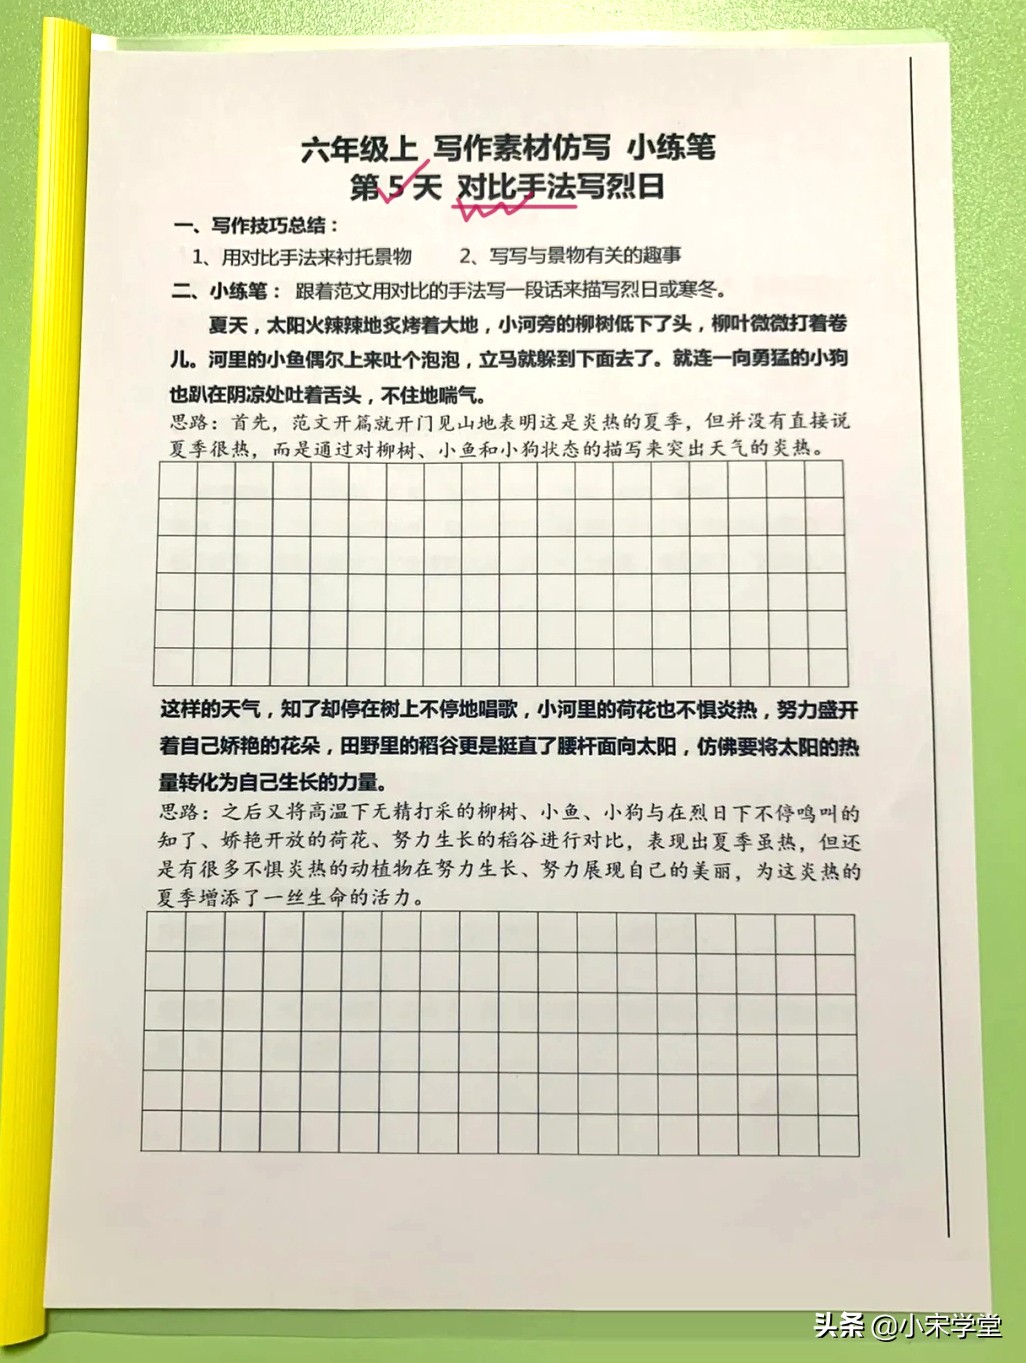 六年级上 写作素材仿写 小练笔
第5天 对比手法写烈日
一、写作技巧总结：
1、用对比手法来衬托景物 2、写写与景物有关的趣事
二、小练笔： 跟着范文用对比的手法写一段话来描写烈日或寒冬。
夏天，太阳火辣辣地炙烤着大地，小河旁的柳树低下了头，柳叶微微打着卷
儿。河里的小鱼偶尔上来吐个泡泡，立马就躲到下面去了。就连一向勇猛的小狗
也趴在阴凉处吐着舌头，不住地喘气。
思路：首先，范文开篇就开门见山地表明这是炎热的夏季，但并没有直接说
夏季很热，而是通过对柳树、小鱼和小狗状态的描写来突出天气的炎热。
这样的天气，知了却停在树上不停地唱歌，小河里的荷花也不惧炎热，努力盛开
着自己娇艳的花朵，田野里的稻谷更是挺直了腰杆面向太阳，仿佛要将太阳的热
量转化为自己生长的力量。
思路：之后又将高温下无精打采的柳树、小鱼、小狗与在烈日下不停鸣叫的
知了、娇艳开放的荷花、努力生长的稻谷进行对比，表现出夏季虽热，但还
是有很多不惧炎热的动植物在努力生长、努力展现自己的美丽，为这炎热的
夏季增添了一丝生命的活力。
头条 @小宋学堂